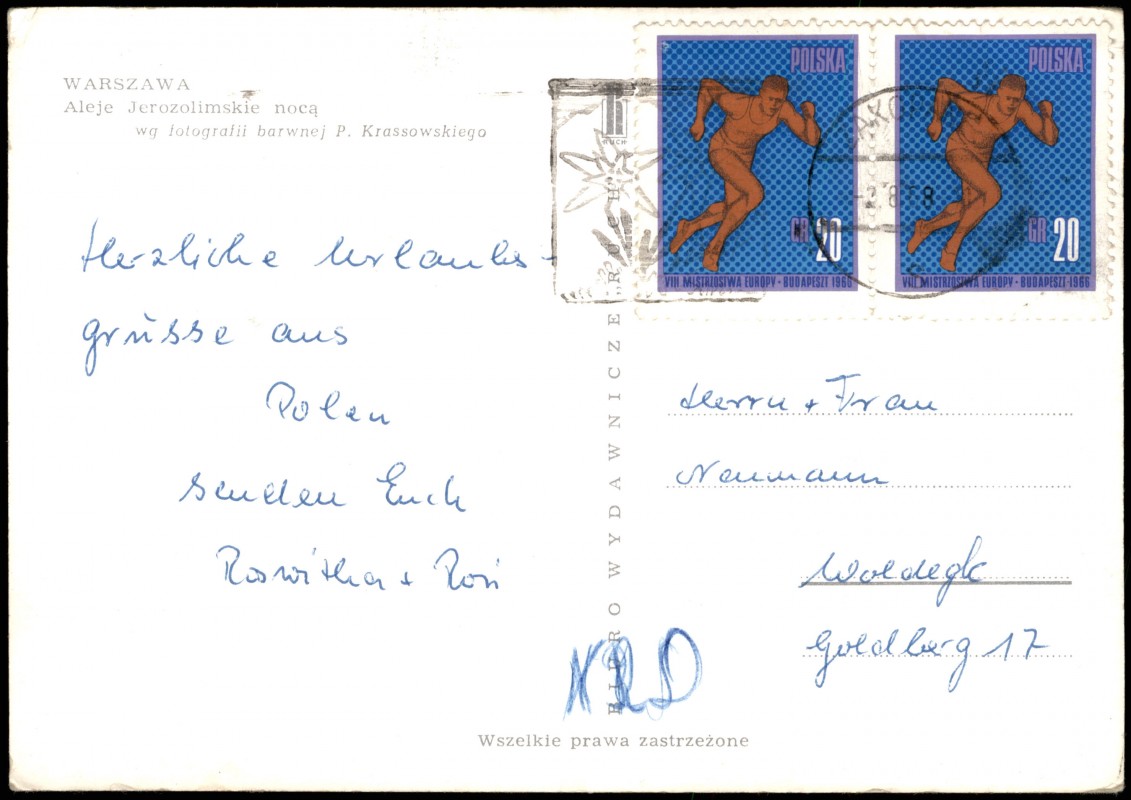 WARSZAWA
Aleje Jerozolimskie nocą
wg fotografii barwnej P. Krassowskiego
Herzliche Urlaubs-
grüsse aus
Polen
senden Euch
Roswitha +
POLSKA
GR 20
VIII MISTRZOSTWA EUROPY • BUDAPESZT 1966
POLSKA
GR 20
VIII MISTRZOSTWA EUROPY • BUDAPESZT 1966
RUCH
BIURO WYDAWNICZE „RUCH”
Herrn + Frau
Neumann
Woldegk
Goldberg 17
NRD
Wszelkie prawa zastrzeżone